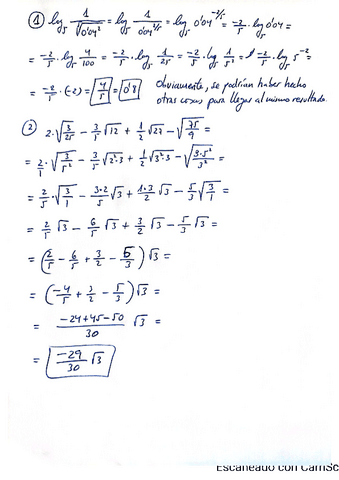 ① log₅ 1/⁵√0'04² = log₅ 1/0'04^(2/5) = log₅ 0'04^(-2/5) = -2/5 · log₅ 0'04 =
= -2/5 · log₅ 4/100 = -2/5 · log₅ 1/25 = -2/5 · log₅ 1/5² = -2/5 · log₅ 5⁻² =
= -2/5 · (-2) = 4/5 = 0'8 Obviamente, se podrían haber hecho
otras cosas para llegar al mismo resultado.
② 2·√(3/25) - 3/5 √12 + 1/2 √27 - √(75/9) =
= 2/1 · √(3/5²) - 3/5 √(2²·3) + 1/2 √(3²·3) - √(3·5²/3²) =
= 2/5 · √(3/1) - 3·2/5 √3 + 1·3/2 √3 - 5/3 √(3/1) =
= 2/5 √3 - 6/5 √3 + 3/2 √3 - 5/3 √3 =
= (2/5 - 6/5 + 3/2 - 5/3) √3 =
= (-4/5 + 3/2 - 5/3) √3 =
= (-24+45-50)/30 √3 =
= -29/30 √3
Escaneado con CamSc